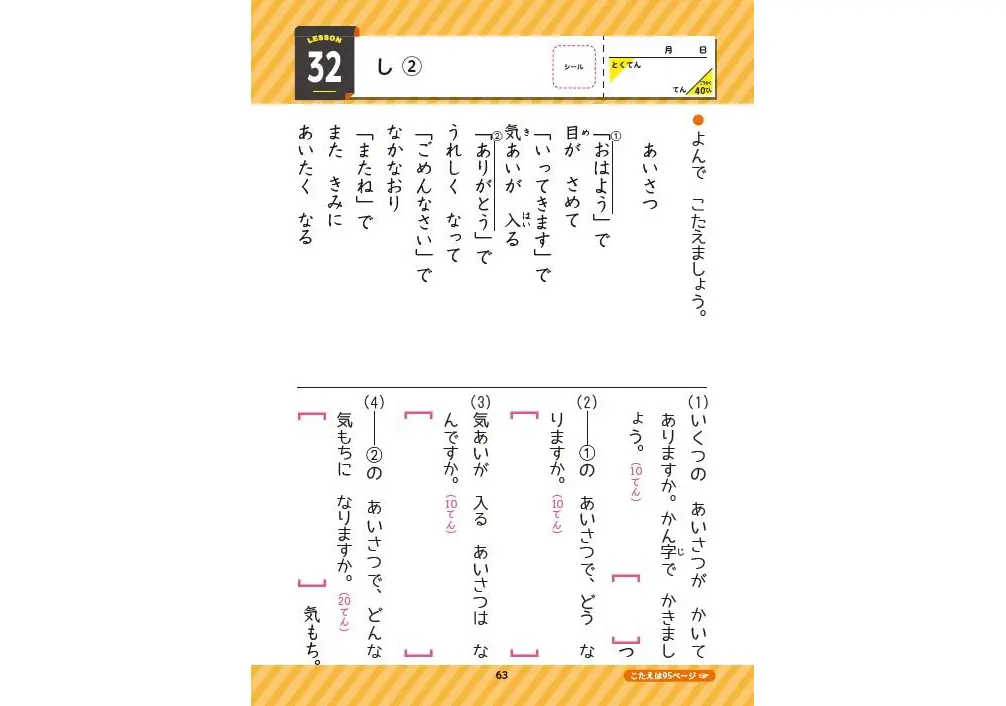 LESSON
32
し ②
シール
月 日
とくてん
てん
40てん
● よんで こたえましょう。
あいさつ
①「おはよう」で
目が さめて
め
「いってきます」で
気あいが 入る
き はい
②「ありがとう」で
うれしく なって
「ごめんなさい」で
なかなおり
「またね」で
また きみに
あいたく なる
(1)いくつの あいさつが かいて
ありますか。かん字で かきまし
じ
ょう。(10てん)
[ ]つ
(2)──①の あいさつで、どう な
りますか。(10てん)
[ ]
(3)気あいが 入る あいさつは な
んですか。(10てん)
[ ]
(4)──②の あいさつで、どんな
気もちに なりますか。(20てん)
[ ]気もち。
63
こたえは95ページ☞